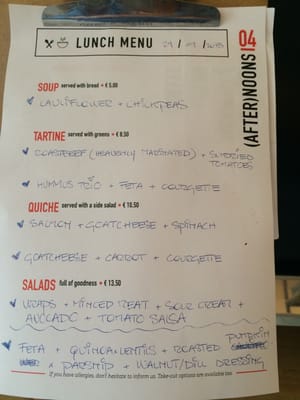 LUNCH MENU
04
(AFTER)NOONS
SOUP served with bread • € 5.00
CAULIFLOWER + CHICKPEAS
TARTINE served with greens • € 8.50
ROASTBEEF (HEAVENLY MARINATED) + SUNDRIED
TOMATOES
HUMMUS TRIO + FETA + COURGETTE
QUICHE served with a side salad • € 10.50
SALMON + GOATCHEESE + SPINACH
GOATCHEESE + CARROT + COURGETTE
SALADS full of goodness • € 13.50
WRAPS + MINCED MEAT + SOUR CREAM +
AVOCADO + TOMATO SALSA
FETA + QUINOA & LENTILS + ROASTED PUMPKIN
x PARSNIP + WALNUT/DILL DRESSING
If you have allergies, don't hesitate to inform us. Take-out options are available too.